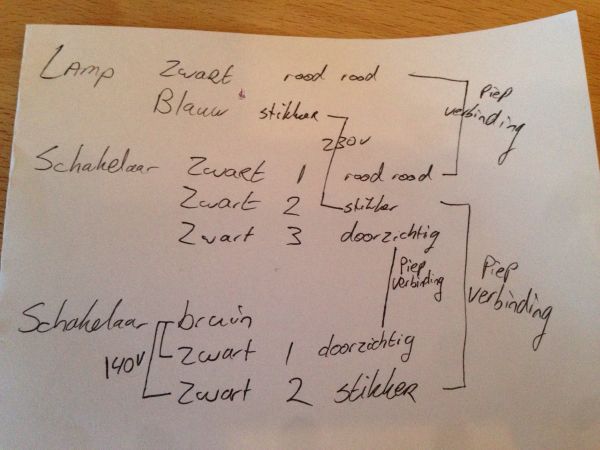 LAMP Zwart rood rood
Blauw stikker
Piep verbinding
230V
Schakelaar Zwart 1 rood rood
Zwart 2 stikker
Zwart 3 doorzichtig
Piep verbinding
Piep verbinding
Schakelaar bruin
Zwart 1 doorzichtig
140V
Zwart 2 stikker